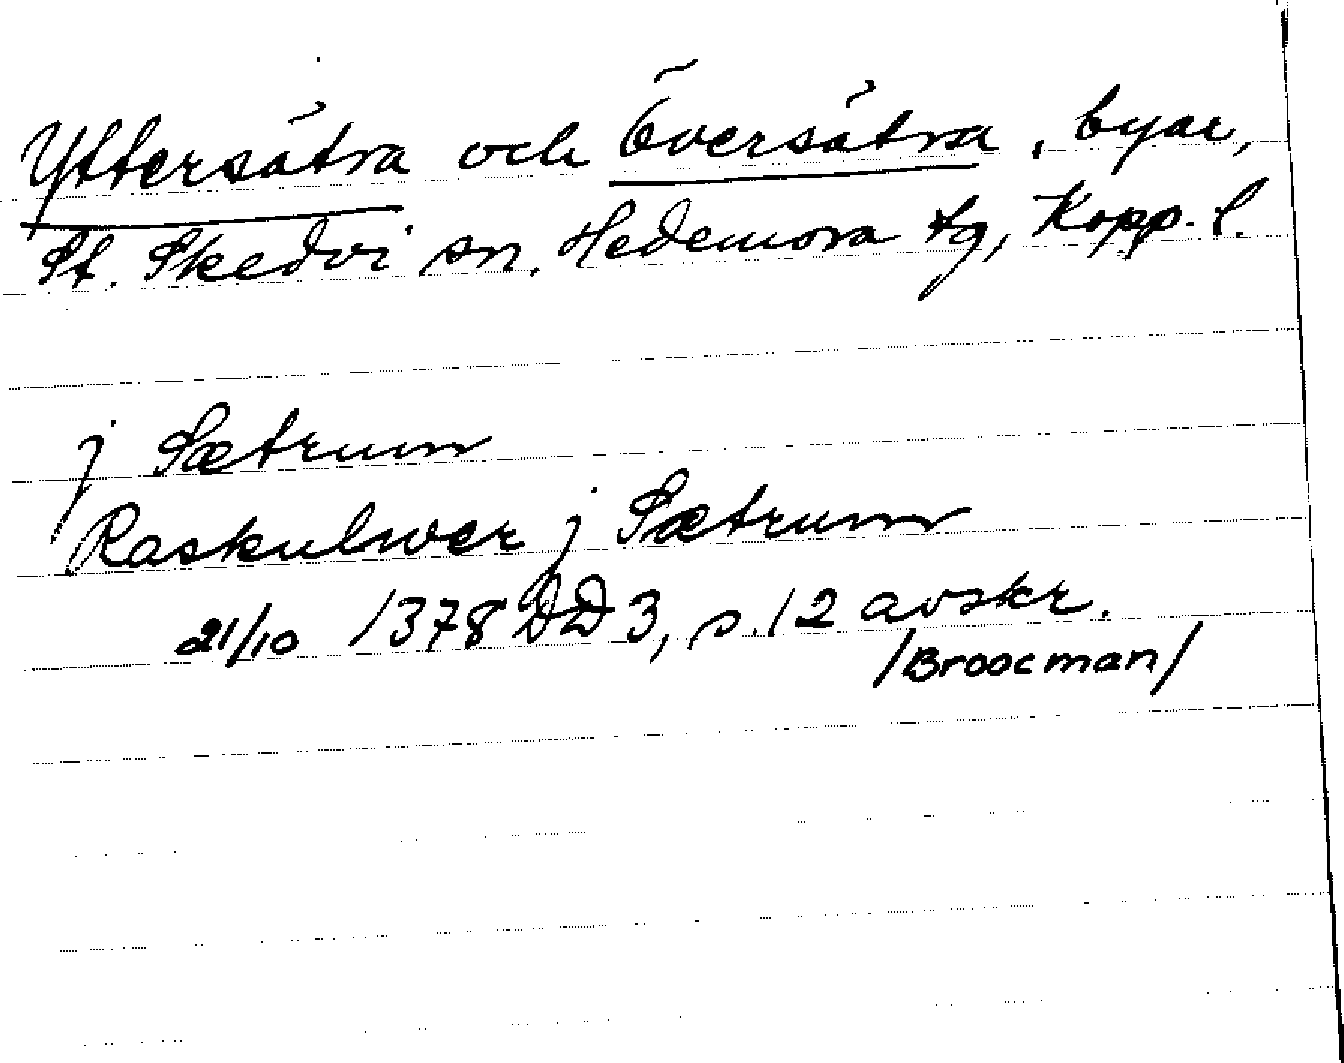 Yttersätra och Översätra, byar,
St. Skedvi sn. Hedemora tg, Kopp. l.
j Sætrum
Raskulwer j Sætrum
21/10 1378 DD 3, s. 12 avskr.
/Broocman/